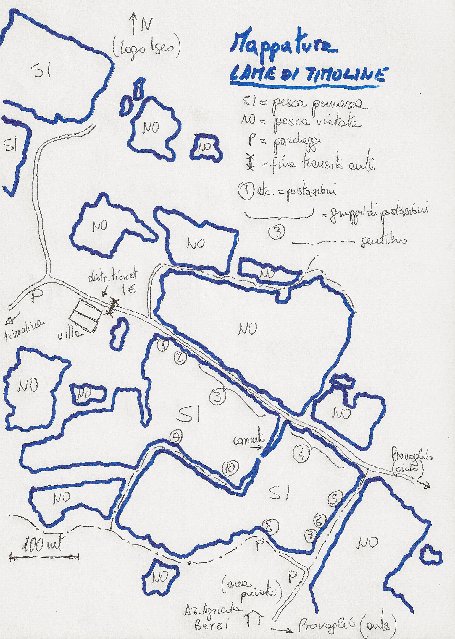 N
(Lago Iseo)
Mappatura
LAME DI TIMOLINE
SI = pesca permessa
NO = pesca vietata
P = parcheggi
= fine transito auto
① etc. = postazioni
= gruppi di postazioni
③
= sentiero
SI
SI
NO
NO
NO
NO
NO
NO
distr. ticket
1€
P
timoline
villa
①
②
③
NO
NO
NO
SI
canale
④
⑨
⑩
SI
Provaglio
NO
⑤
⑥
⑦
⑧
P
P
NO
100 mt
NO
(area
private)
Az. Agricola
Bersi
Provaglio (auto)